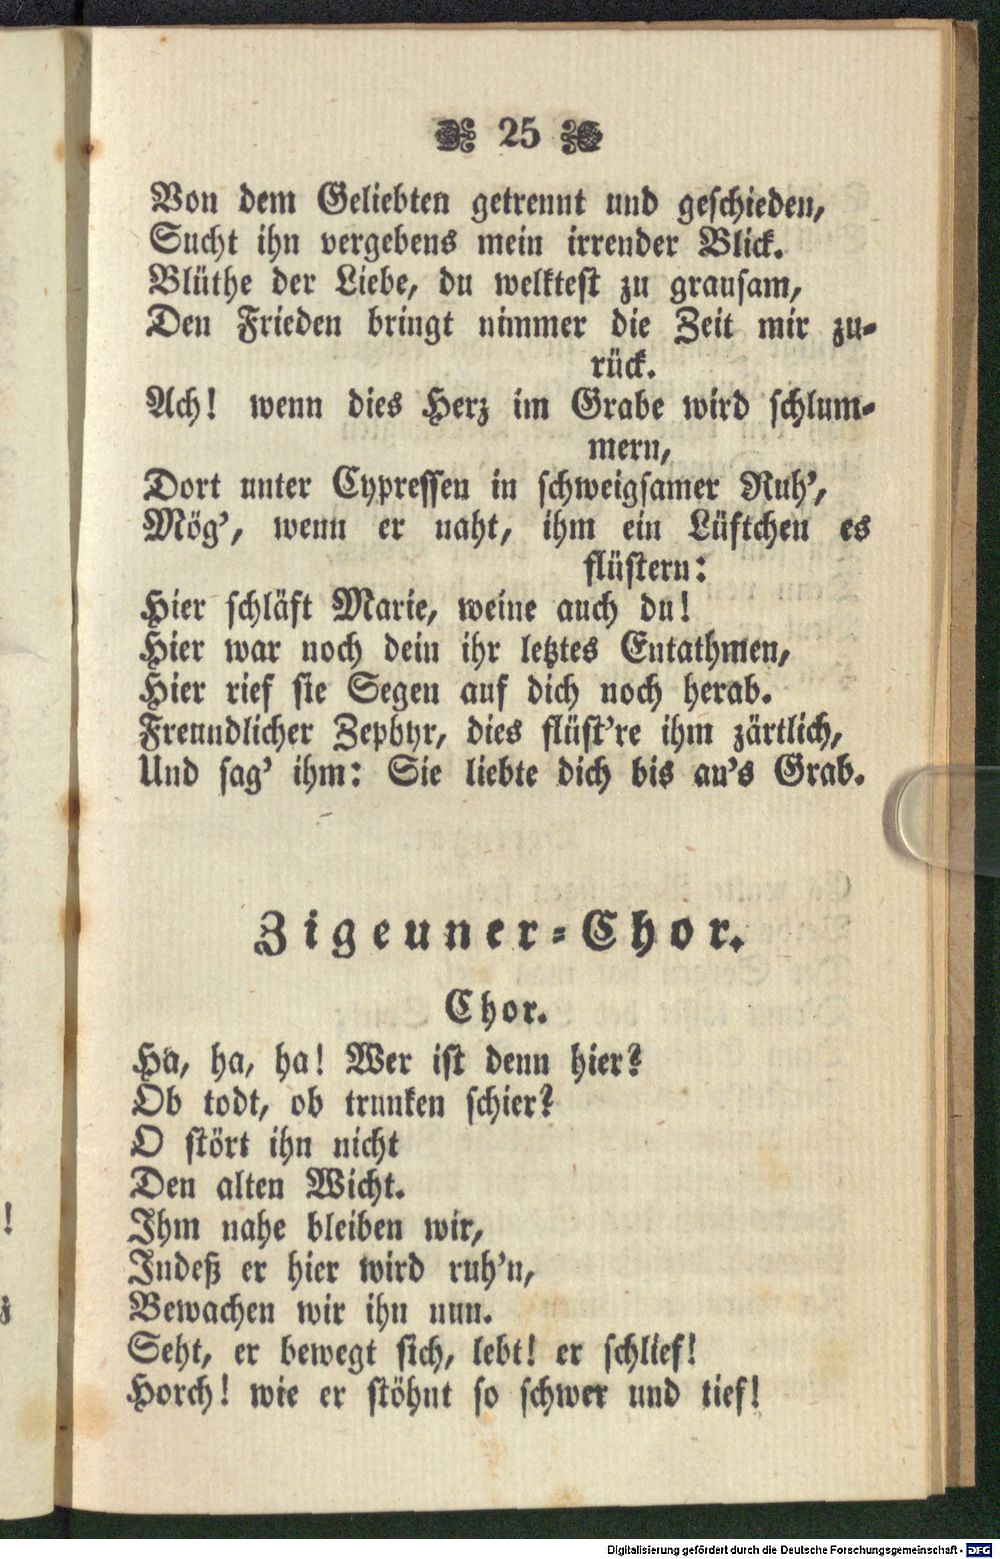 25
Von dem Geliebten getrennt und geschieden,
Sucht ihn vergebens mein irrender Blick.
Blüthe der Liebe, du welktest zu grausam,
Den Frieden bringt nimmer die Zeit mir zu-
rück.
Ach! wenn dies Herz im Grabe wird schlum-
mern,
Dort unter Cypressen in schweigsamer Ruh',
Mög', wenn er naht, ihm ein Lüftchen es
flüstern:
Hier schläft Marie, weine auch du!
Hier war noch dein ihr letztes Entathmen,
Hier rief sie Segen auf dich noch herab.
Freundlicher Zephyr, dies flüst're ihm zärtlich,
Und sag' ihm: Sie liebte dich bis an's Grab.
Zigeuner-Chor.
Chor.
Ha, ha, ha! Wer ist denn hier?
Ob todt, ob trunken schier?
O stört ihn nicht
Den alten Wicht.
Ihm nahe bleiben wir,
Indeß er hier wird ruh'n,
Bewachen wir ihn nun.
Seht, er bewegt sich, lebt! er schlief!
Horch! wie er stöhnt so schwer und tief!
Digitalisierung gefördert durch die Deutsche Forschungsgemeinschaft - DFG